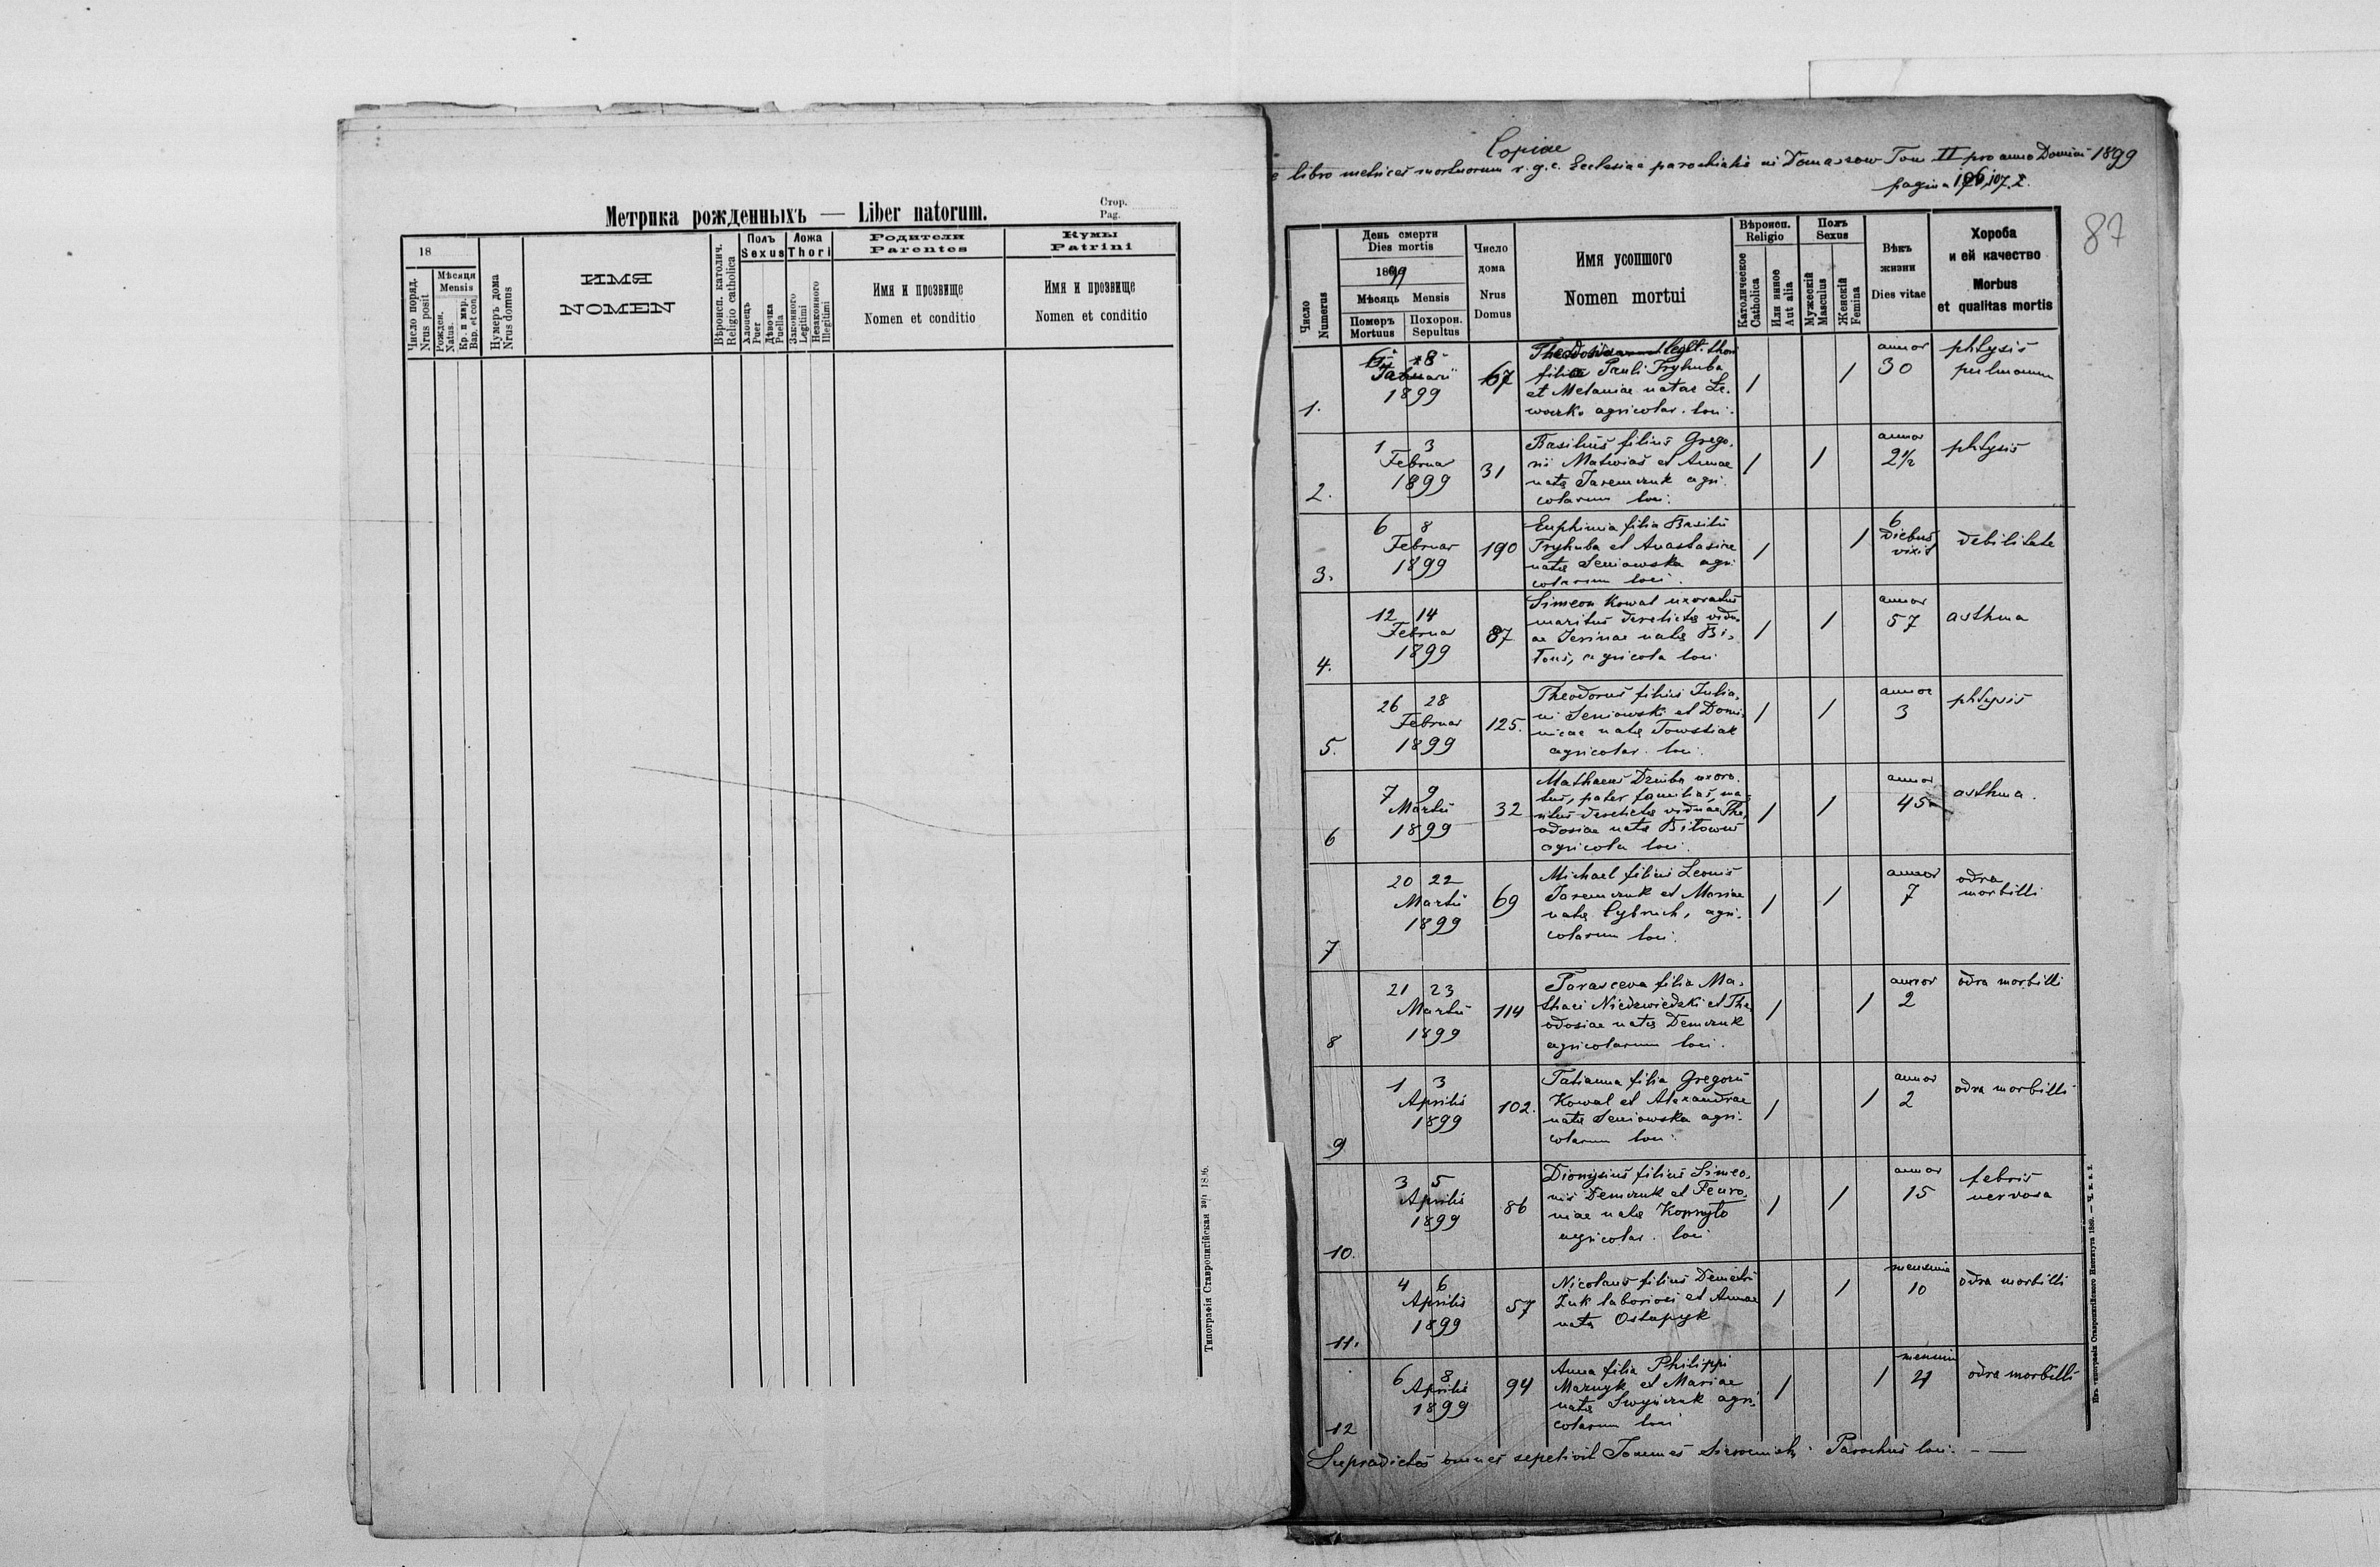 Метрика рожденныхъ — Liber natorum.
Стор.
Pag.
18
Число поряд.
Nrus posit
Мѣсяця
Mensis
Рожден.
Natus.
Кр. и мир.
Bap. et con.
Нумеръ дома
Nrus domus
ИМЯ
NOMEN
Вѣроисп. католич.
Religio catholica
Полъ
Sexus
Хлопецъ
Puer
Дѣвочка
Puella
Ложа
Thori
Законного
Legitimi
Незаконного
Illegitimi
Родители
Parentes
Имя и прозвище
Nomen et conditio
Кумы
Patrini
Имя и прозвище
Nomen et conditio
Типографія Ставропигійская
Copiae
e libro metrices mortuorum r. g. c. Ecclesiae parochialis in Domaszow Tom II pro anno Domini 1899
pagina 106, 107.
87
Число
Numerus
День смерти
Dies mortis
1899
Мѣсяць Mensis
Померъ
Mortuus
Похорон.
Sepultus
Число
дома
Nrus
Domus
Имя усопшого
Nomen mortui
Вѣроисп.
Religio
Католическое
Catholica
Или иное
Aut alia
Полъ
Sexus
Мужескій
Masculus
Женскій
Femina
Вѣкъ
жизни
Dies vitae
Хороба
и ей качество
Morbus
et qualitas mortis
1.
6 8
Januarii
1899
67
Theodosia legit. thori
filia Pauli Tryhuba
et Melaniae natae Le-
agricolar. loci.
1 1
annor
30
phtysis
pulmonum
2.
1 3
Februar
1899
31
Basilius filius Grego-
rii Matwias et Annae
nata Jaremczuk agri-
colarum loci.
1 1
annor
2 1/2
phtysis
3.
6 8
Februar
1899
190
Euphimia filia Basilii
Tryhuba et Anastasiae
nata Seniowska agri-
colarum loci.
1 1
6
diebus
vixit
debilitate
4.
12 14
Februar
1899
87
Simeon Kowal uxoratus
maritus derelicta vidu-
ae Irenae nata Bi-
agricola loci
1 1
annor
57
asthma
5.
26 28
Februar
1899
125.
Theodorus filius Julia-
ni Seniowski et Domi-
nicae nata Towstiak
agricolar. loci.
1 1
annor
3
phtysis
6
7 9
Martii
1899
32
Mathaeus Dziuba uxora-
tus, pater familias, ma-
ritus derelicta viduae The-
odosiae nata
agricola loci.
1 1
annor
45
asthma.
7
20 22
Martii
1899
69
Michael filius Leonis
Jaremczuk et Mariae
nata Cybruch, agri-
colarum loci.
1 1
annor
7
odra
morbilli
8
21 23
Martii
1899
114
Parasceva filia Ma-
thaei Niedzwiedzki et The-
odosiae nata Demczuk
agricolarum loci.
1 1
annor
2
odra morbilli
9
1 3
Aprilis
1899
102.
Tatianna filia Gregorii
Kowal et Alexandrae
nata Seniowska agri-
colarum loci.
1 1
annor
2
odra morbilli
10.
3 5
Aprilis
1899
86
Dionysius filius Simeo-
nis Demczuk et Fewro-
niae nata Kopryto
agricolar. loci
1 1
annor
15
febris
nervosa
11.
4 6
Aprilis
1899
57
Nicolaus filius Demetri
Żuk laboriosi et Annae
nata Ostapyk
1 1
mensium
10
odra morbilli
12
6 8
Aprilis
1899
94
Anna filia Philippi
Maznyk et Mariae
nata agri-
colarum loci
1 1
mensium
odra morbilli
Supradictos omnes sepelivit Joannes Parochus loci. — —
Изъ типографіи Ставропигійского Института 1889.